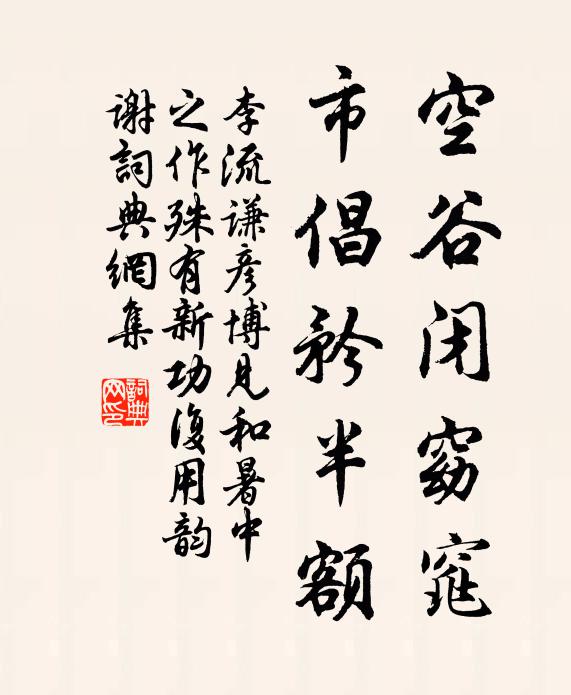 空谷闭窈窕
市倡矜半额
李流谦彦博见和暑中
之作殊有新功复用韵
谢词典网集
词典网印